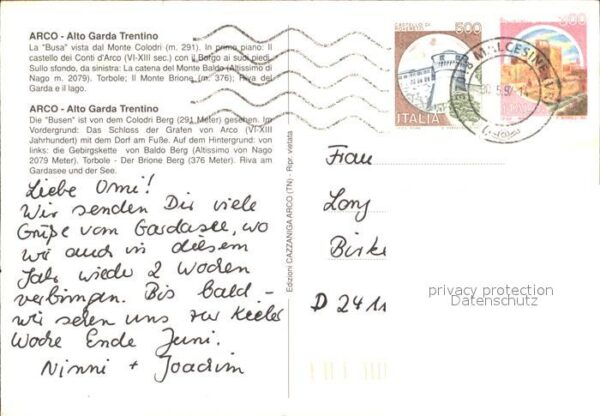 ARCO - Alto Garda Trentino
La "Busa" vista dal Monte Colodri (m. 291). In primo piano: Il
castello dei Conti d'Arco (VI-XIII sec.) con il Borgo ai suoi piedi.
Sullo sfondo, da sinistra: La catena del Monte Baldo (Altissimo di
Nago m. 2079). Torbole; Il Monte Brione (m. 376); Riva del
Garda e il lago.
ARCO - Alto Garda Trentino
Die "Busen" ist von dem Colodri Berg (291 Meter) gesehen. Im
Vordergrund: Das Schloss der Grafen von Arco (VI-XIII
Jahrhundert) mit dem Dorf am Fuße. Auf dem Hintergrund: von
links: die Gebirgskette von Baldo Berg (Altissimo von Nago
2079 Meter). Torbole - Der Brione Berg (376 Meter). Riva am
Gardasee und der See.
Liebe Omi!
Wir senden Dir viele
Grüße vom Gardasee, wo
wir auch in diesem
Jahr wieder 2 Wochen
verbringen. Bis bald -
wir sehen uns zur Kieler
Woche Ende Juni.
Ninni + Joachim
Edizioni CAZZANIGA ARCO (TN) - Ripr. vietata
CASTELLO DI
ROVERETO
500
ITALIA
300
MALCESINE (VR)
Frau
Lony
Birke
D 2411
privacy protection
Datenschutz